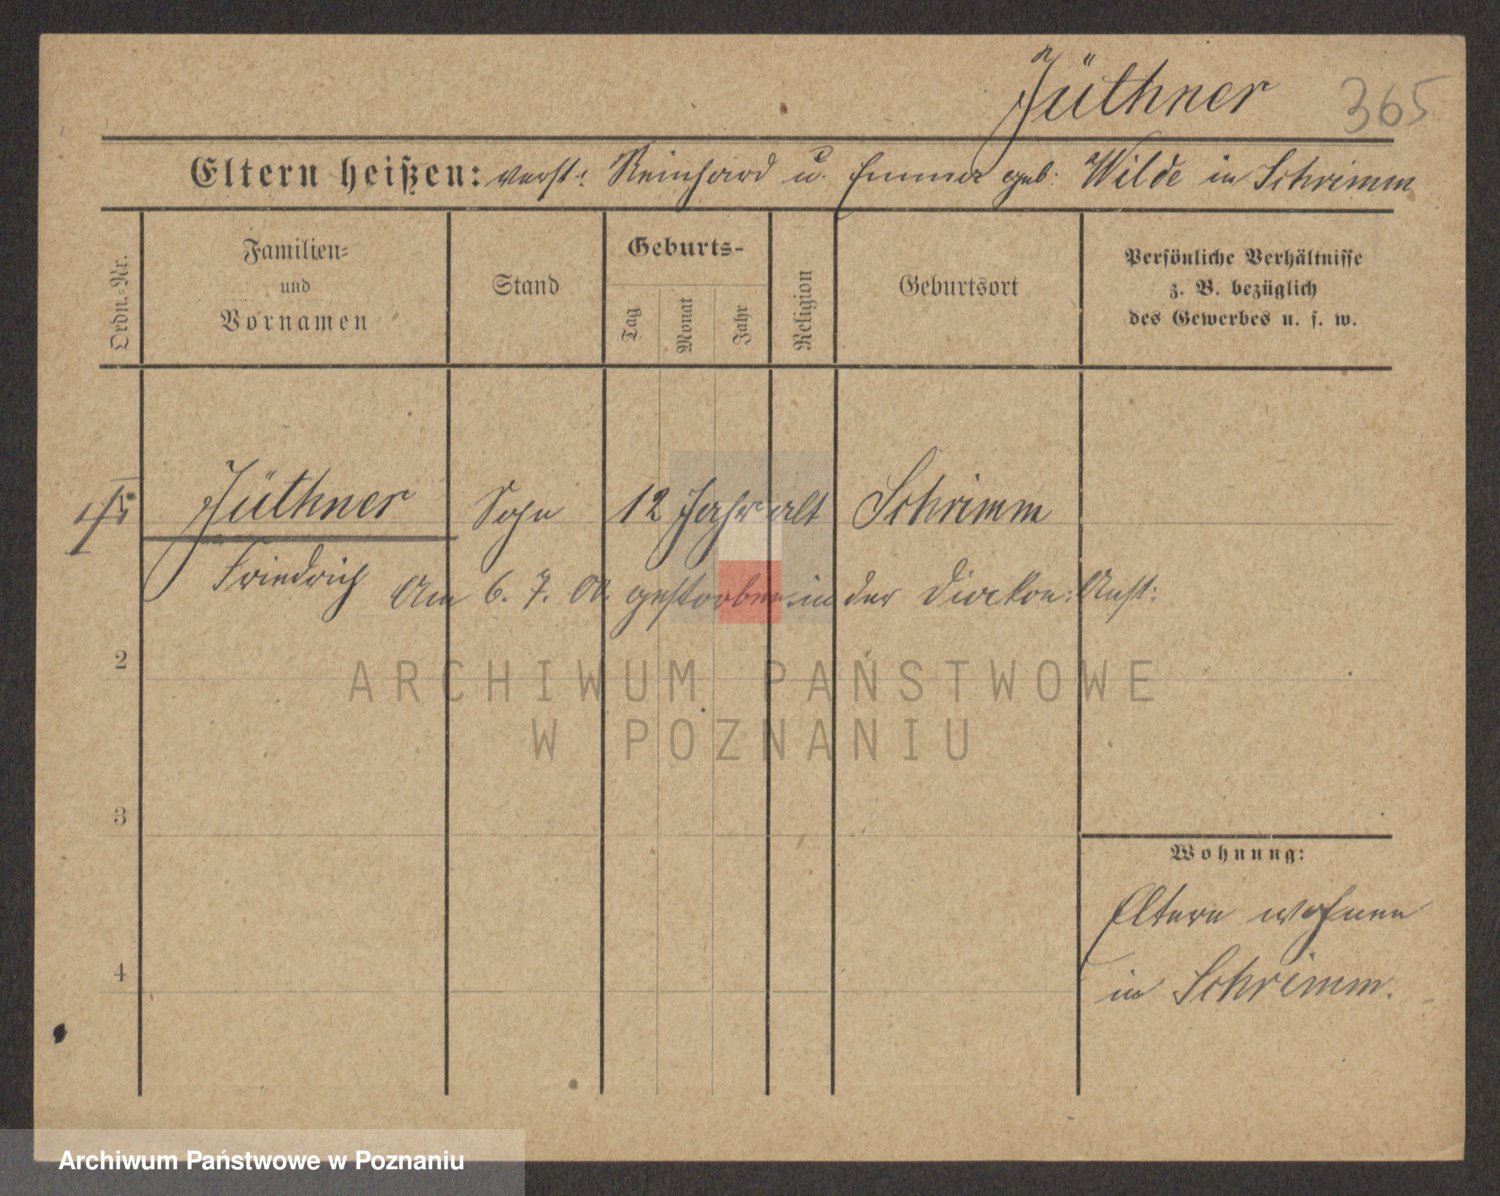 Jüthner 365
Eltern heißen: verst: Reinhard u. Emma geb: Wilde in Schrimm
Ordn.-Nr.
Familien-
und
Vornamen
Stand
Geburts-
Tag
Monat
Jahr
Religion
Geburtsort
Persönliche Verhältnisse
z. B. bezüglich
des Gewerbes u. s. w.
Jüthner Sohn 12 Jahr alt Schrimm
Friedrich Am 6. 7. 00. gestorben in der Diakon: Anst:
2
ARCHIWUM PAŃSTWOWE
W POZNANIU
3
Wohnung:
Eltern wohnen
4
in Schrimm.
Archiwum Państwowe w Poznaniu